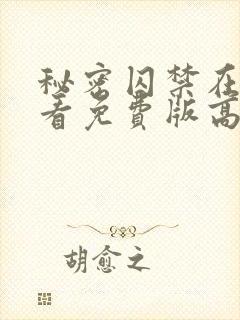 秘密囚禁在
看免费版高
胡愈之